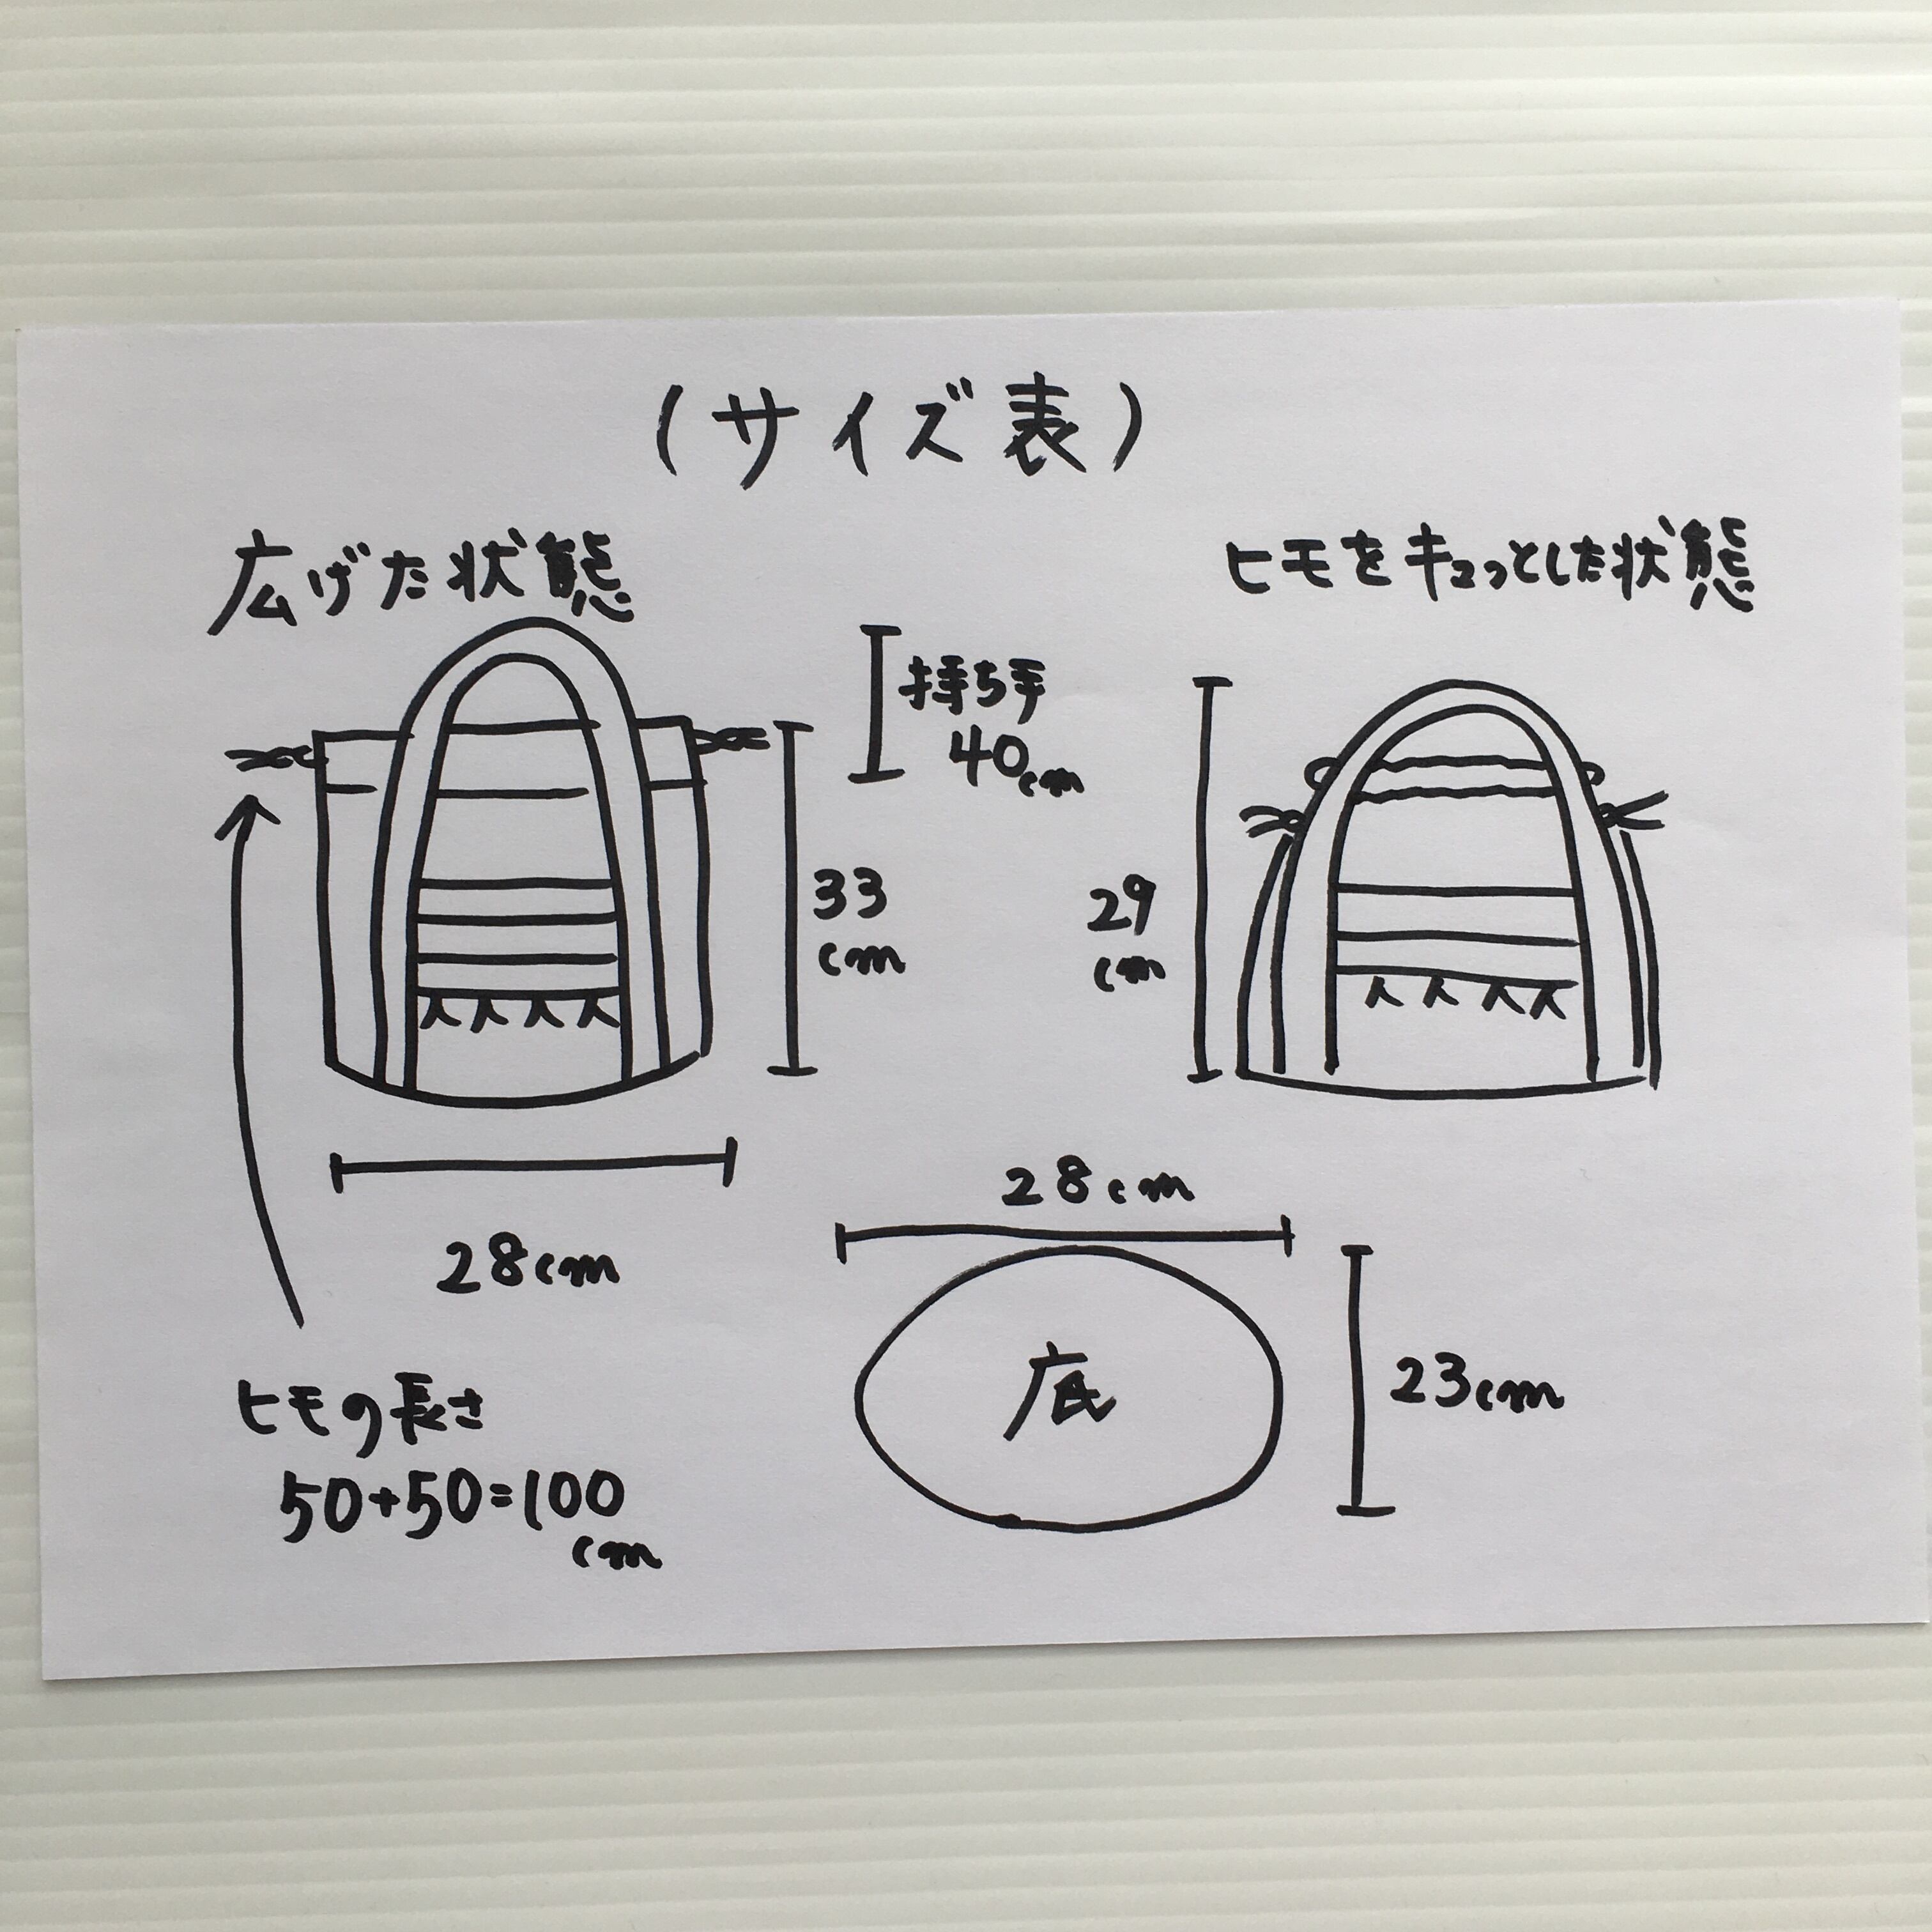 (サイズ表)
広げた状態
ヒモをキュっとした状態
持ち手
40cm
33
cm
29
cm
28cm
28cm
底
23cm
ヒモの長さ
50+50=100
cm